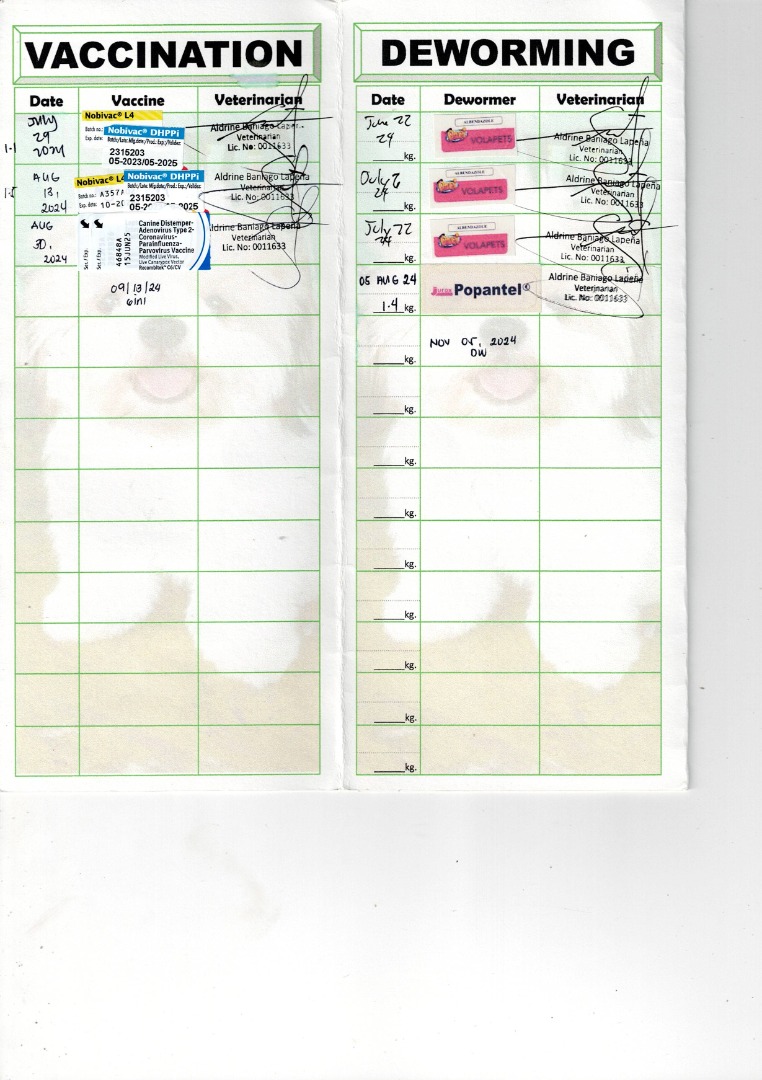 VACCINATION
Date Vaccine Veterinarian
July 29 2024
1.1
Nobivac® L4
Nobivac® DHPPi
2315203
05-2023/05-2025
Aldrine Baniago
Veterinarian
Lic. No: 0011633
AUG 13, 2024
1.5
Nobivac® L4
Nobivac® DHPPi
2315203
Aldrine Baniago Lapeña
Veterinarian
Lic. No: 0011633
AUG 30, 2024
46848A
15JUN25
Canine Distemper-
Adenovirus Type 2-
Coronavirus-
Parainfluenza-
Parvovirus Vaccine
Modified Live Virus,
Live Canarypox Vector
Recombitek® C6/CV
Aldrine Baniago Lapeña
Veterinarian
Lic. No: 0011633
09/13/24
6in1
DEWORMING
Date Dewormer Veterinarian
June 22 24
kg.
ALBENDAZOLE
VOLAPETS
Aldrine Baniago Lapeña
Veterinarian
Lic. No: 0011633
24
kg.
ALBENDAZOLE
VOLAPETS
Aldrine Baniago Lapeña
Veterinarian
Lic. No: 0011633
July 22 24
kg.
ALBENDAZOLE
VOLAPETS
Aldrine Baniago Lapeña
Veterinarian
Lic. No: 0011633
05 AUG 24
1.4 kg.
Popantel®
Aldrine Baniago Lapeña
Veterinarian
Lic. No: 0011633
kg.
NOV 05, 2024
DW
kg.
kg.
kg.
kg.
kg.
kg.
kg.
kg.